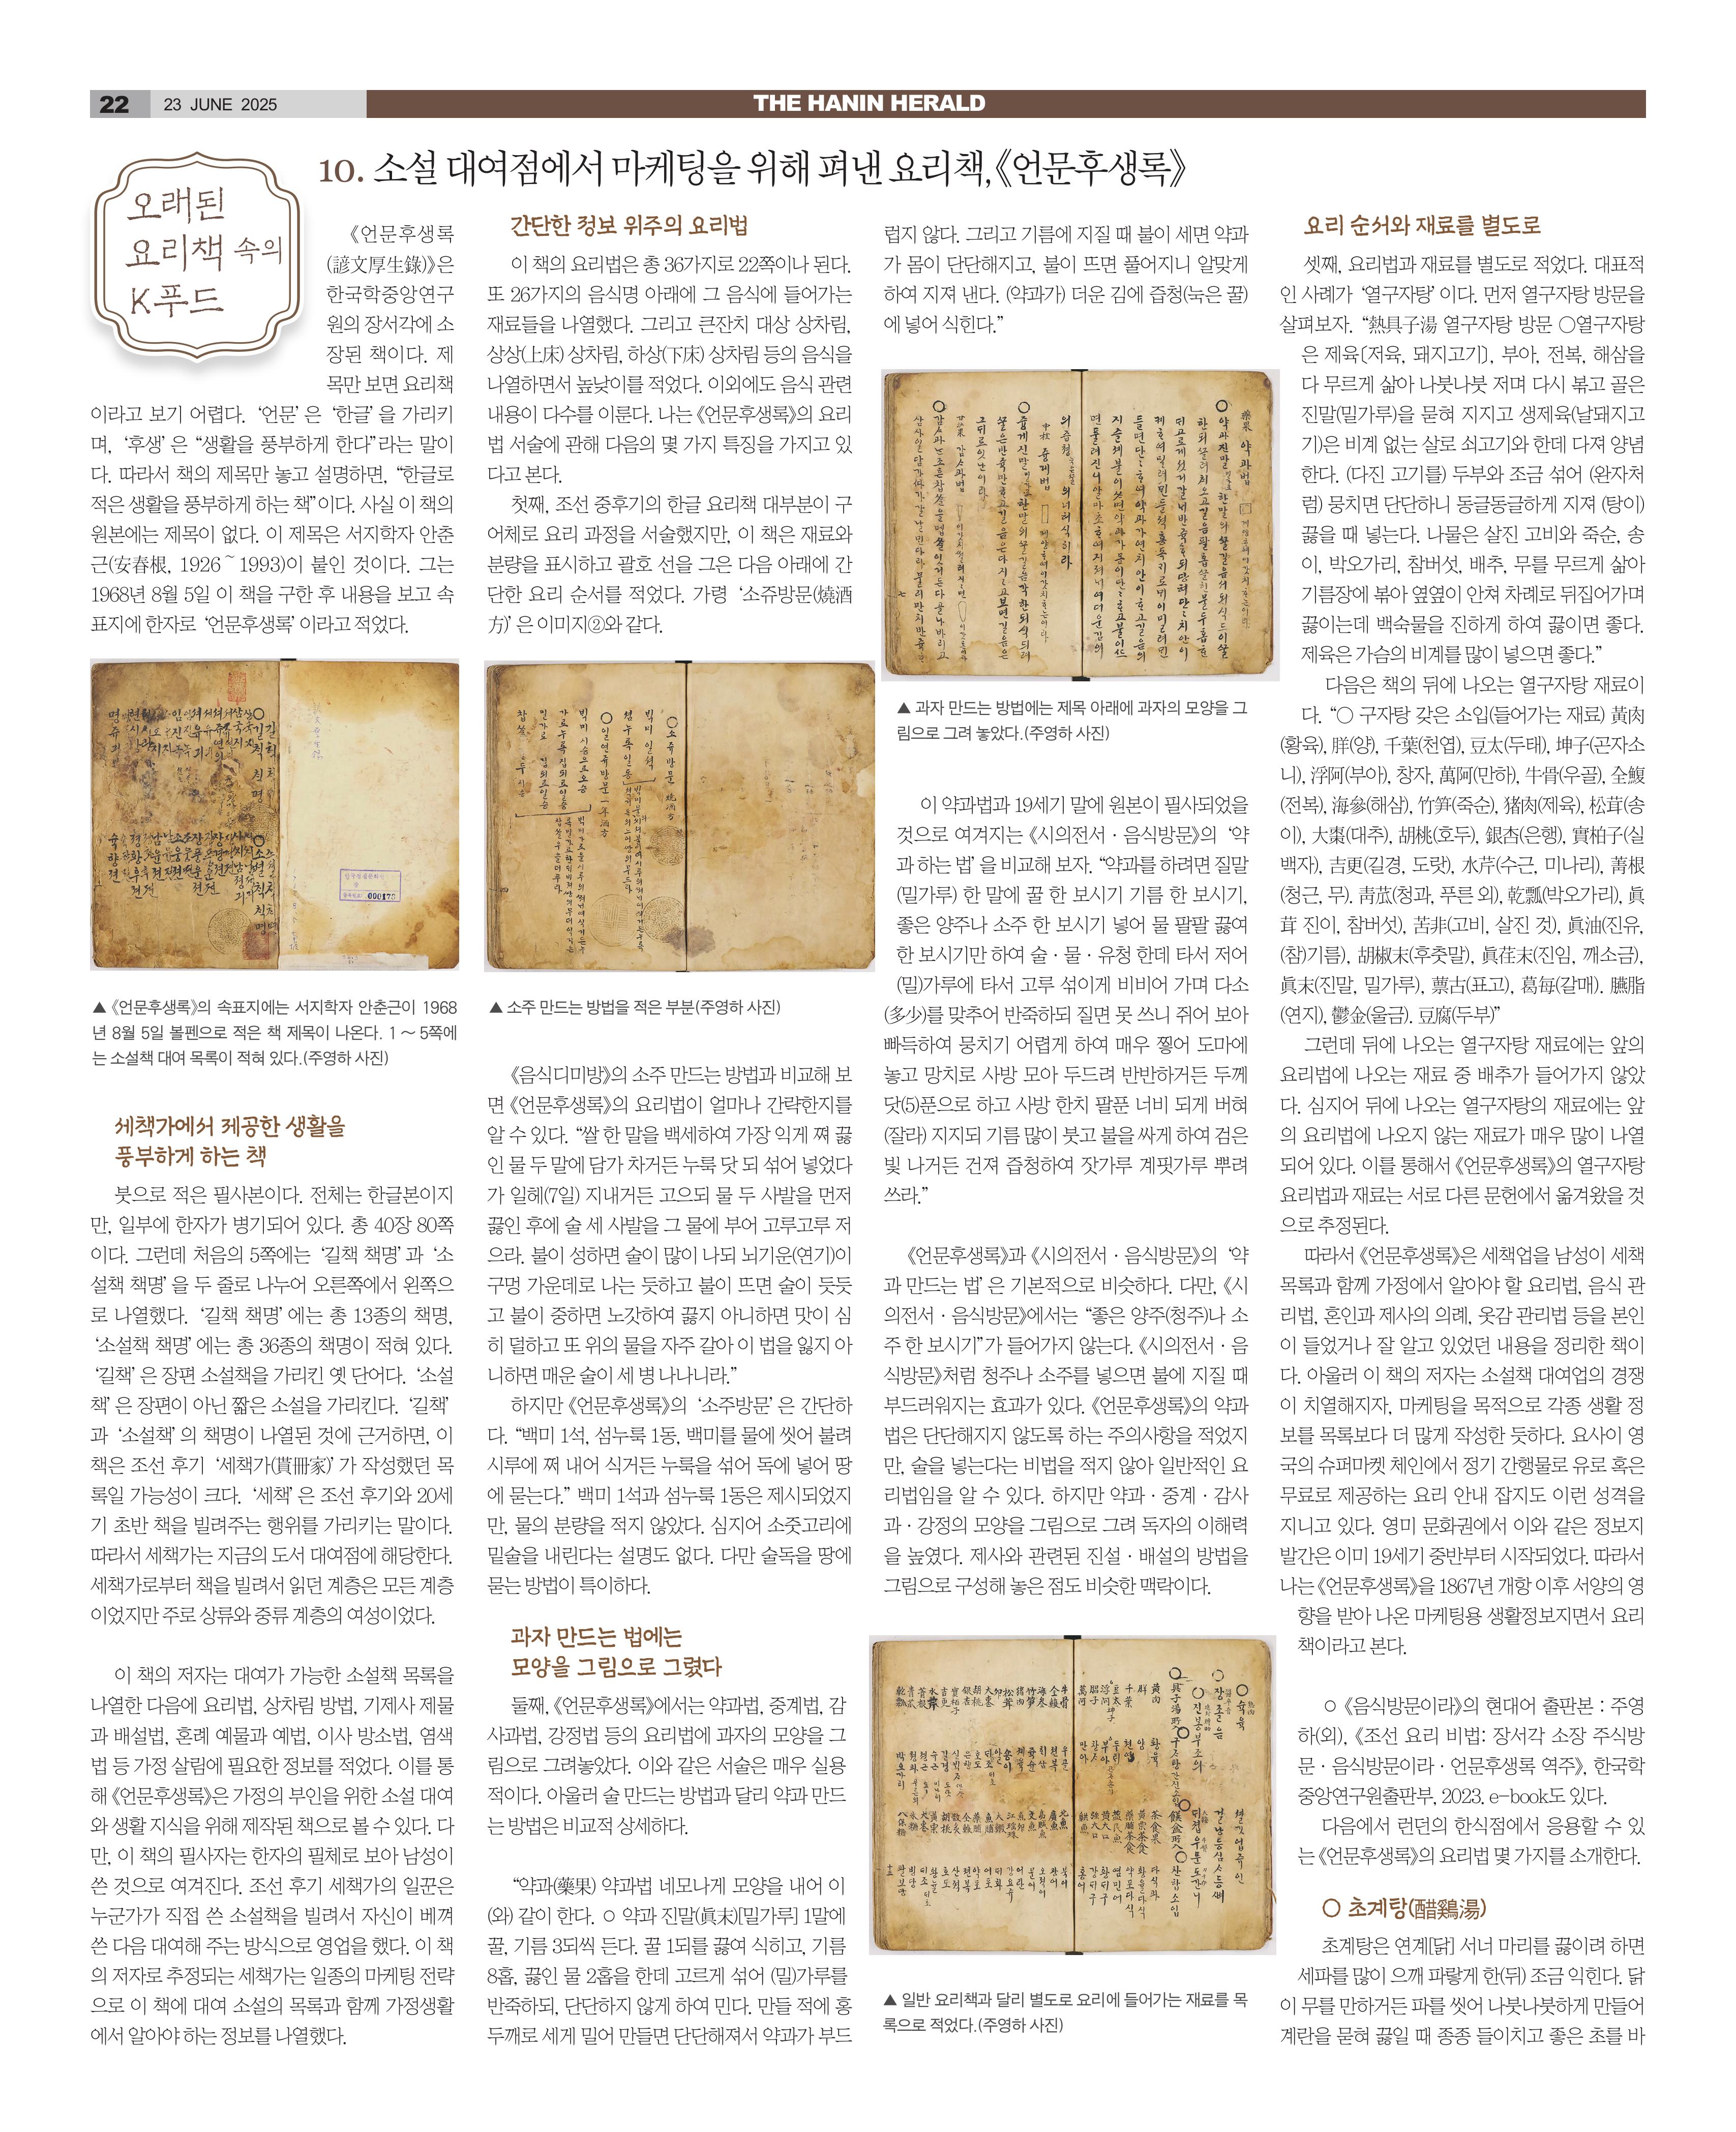 22
23 JUNE 2025
THE HANIN HERALD
오래된
요리책 속의
K푸드
10. 소설 대여점에서 마케팅을 위해 펴낸 요리책,《언문후생록》
《언문후생록
(諺文厚生錄)》은
한국학중앙연구
원의 장서각에 소
장된 책이다. 제
목만 보면 요리책
이라고 보기 어렵다. ‘언문’은 ‘한글’을 가리키
며, ‘후생’은 “생활을 풍부하게 한다”라는 말이
다. 따라서 책의 제목만 놓고 설명하면, “한글로
적은 생활을 풍부하게 하는 책”이다. 사실 이 책의
원본에는 제목이 없다. 이 제목은 서지학자 안춘
근(安春根, 1926~1993)이 붙인 것이다. 그는
1968년 8월 5일 이 책을 구한 후 내용을 보고 속
표지에 한자로 ‘언문후생록’이라고 적었다.
▲《언문후생록》의 속표지에는 서지학자 안춘근이 1968
년 8월 5일 볼펜으로 적은 책 제목이 나온다. 1～5쪽에
는 소설책 대여 목록이 적혀 있다.(주영하 사진)
세책가에서 제공한 생활을
풍부하게 하는 책
붓으로 적은 필사본이다. 전체는 한글본이지
만, 일부에 한자가 병기되어 있다. 총 40장 80쪽
이다. 그런데 처음의 5쪽에는 ‘길책 책명’과 ‘소
설책 책명’을 두 줄로 나누어 오른쪽에서 왼쪽으
로 나열했다. ‘길책 책명’에는 총 13종의 책명,
‘소설책 책명’에는 총 36종의 책명이 적혀 있다.
‘길책’은 장편 소설책을 가리킨 옛 단어다. ‘소설
책’은 장편이 아닌 짧은 소설을 가리킨다. ‘길책’
과 ‘소설책’의 책명이 나열된 것에 근거하면, 이
책은 조선 후기 ‘세책가(貰冊家)’가 작성했던 목
록일 가능성이 크다. ‘세책’은 조선 후기와 20세
기 초반 책을 빌려주는 행위를 가리키는 말이다.
따라서 세책가는 지금의 도서 대여점에 해당한다.
세책가로부터 책을 빌려서 읽던 계층은 모든 계층
이었지만 주로 상류와 중류 계층의 여성이었다.
이 책의 저자는 대여가 가능한 소설책 목록을
나열한 다음에 요리법, 상차림 방법, 기제사 제물
과 배설법, 혼례 예물과 예법, 이사 방소법, 염색
법 등 가정 살림에 필요한 정보를 적었다. 이를 통
해《언문후생록》은 가정의 부인을 위한 소설 대여
와 생활 지식을 위해 제작된 책으로 볼 수 있다. 다
만, 이 책의 필사자는 한자의 필체로 보아 남성이
쓴 것으로 여겨진다. 조선 후기 세책가의 일꾼은
누군가가 직접 쓴 소설책을 빌려서 자신이 베껴
쓴 다음 대여해 주는 방식으로 영업을 했다. 이 책
의 저자로 추정되는 세책가는 일종의 마케팅 전략
으로 이 책에 대여 소설의 목록과 함께 가정생활
에서 알아야 하는 정보를 나열했다.
간단한 정보 위주의 요리법
이 책의 요리법은 총 36가지로 22쪽이나 된다.
또 26가지의 음식명 아래에 그 음식에 들어가는
재료들을 나열했다. 그리고 큰잔치 대상 상차림,
상상(上床) 상차림, 하상(下床) 상차림 등의 음식을
나열하면서 높낮이를 적었다. 이외에도 음식 관련
내용이 다수를 이룬다. 나는《언문후생록》의 요리
법 서술에 관해 다음의 몇 가지 특징을 가지고 있
다고 본다.
첫째, 조선 중후기의 한글 요리책 대부분이 구
어체로 요리 과정을 서술했지만, 이 책은 재료와
분량을 표시하고 괄호 선을 그은 다음 아래에 간
단한 요리 순서를 적었다. 가령 ‘소쥬방문(燒酒
方)’은 이미지②와 같다.
▲ 소주 만드는 방법을 적은 부분(주영하 사진)
《음식디미방》의 소주 만드는 방법과 비교해 보
면《언문후생록》의 요리법이 얼마나 간략한지를
알 수 있다. “쌀 한 말을 백세하여 가장 익게 쪄 끓
인 물 두 말에 담가 차거든 누룩 닷 되 섞어 넣었다
가 일헤(7일) 지내거든 고으되 물 두 사발을 먼저
끓인 후에 술 세 사발을 그 물에 부어 고루고루 저
으라. 불이 성하면 술이 많이 나되 뇌기운(연기)이
구멍 가운데로 나는 듯하고 불이 뜨면 술이 듯듯
고 불이 중하면 노갓하여 끓지 아니하면 맛이 심
히 덜하고 또 위의 물을 자주 갈아 이 법을 잃지 아
니하면 매운 술이 세 병 나나니라.”
하지만《언문후생록》의 ‘소주방문’은 간단하
다. “백미 1석, 섬누룩 1동, 백미를 물에 씻어 불려
시루에 쪄 내어 식거든 누룩을 섞어 독에 넣어 땅
에 묻는다.” 백미 1석과 섬누룩 1동은 제시되었지
만, 물의 분량을 적지 않았다. 심지어 소줏고리에
밑술을 내린다는 설명도 없다. 다만 술독을 땅에
묻는 방법이 특이하다.
과자 만드는 법에는
모양을 그림으로 그렸다
둘째,《언문후생록》에서는 약과법, 중계법, 감
사과법, 강정법 등의 요리법에 과자의 모양을 그
림으로 그려놓았다. 이와 같은 서술은 매우 실용
적이다. 아울러 술 만드는 방법과 달리 약과 만드
는 방법은 비교적 상세하다.
“약과(藥果) 약과법 네모나게 모양을 내어 이
(와) 같이 한다. ○ 약과 진말(眞末)[밀가루] 1말에
꿀, 기름 3되씩 든다. 꿀 1되를 끓여 식히고, 기름
8홉, 끓인 물 2홉을 한데 고르게 섞어 (밀)가루를
반죽하되, 단단하지 않게 하여 민다. 만들 적에 홍
두깨로 세게 밀어 만들면 단단해져서 약과가 부드
럽지 않다. 그리고 기름에 지질 때 불이 세면 약과
가 몸이 단단해지고, 불이 뜨면 풀어지니 알맞게
하여 지져 낸다. (약과가) 더운 김에 즙청(눅은 꿀)
에 넣어 식힌다.”
▲ 과자 만드는 방법에는 제목 아래에 과자의 모양을 그
림으로 그려 놓았다.(주영하 사진)
이 약과법과 19세기 말에 원본이 필사되었을
것으로 여겨지는《시의전서·음식방문》의 ‘약
과 하는 법’을 비교해 보자. “약과를 하려면 질말
(밀가루) 한 말에 꿀 한 보시기 기름 한 보시기,
좋은 양주나 소주 한 보시기 넣어 물 팔팔 끓여
한 보시기만 하여 술·물·유청 한데 타서 저어
(밀)가루에 타서 고루 섞이게 비비어 가며 다소
(多少)를 맞추어 반죽하되 질면 못 쓰니 쥐어 보아
빠득하여 뭉치기 어렵게 하여 매우 찧어 도마에
놓고 망치로 사방 모아 두드려 반반하거든 두께
닷(5)푼으로 하고 사방 한치 팔푼 너비 되게 버혀
(잘라) 지지되 기름 많이 붓고 불을 싸게 하여 검은
빛 나거든 건져 즙청하여 잣가루 계핏가루 뿌려
쓰라.”
《언문후생록》과《시의전서·음식방문》의 ‘약
과 만드는 법’은 기본적으로 비슷하다. 다만,《시
의전서·음식방문》에서는 “좋은 양주(청주)나 소
주 한 보시기”가 들어가지 않는다.《시의전서·음
식방문》처럼 청주나 소주를 넣으면 불에 지질 때
부드러워지는 효과가 있다.《언문후생록》의 약과
법은 단단해지지 않도록 하는 주의사항을 적었지
만, 술을 넣는다는 비법을 적지 않아 일반적인 요
리법임을 알 수 있다. 하지만 약과·중계·감사
과·강정의 모양을 그림으로 그려 독자의 이해력
을 높였다. 제사와 관련된 진설·배설의 방법을
그림으로 구성해 놓은 점도 비슷한 맥락이다.
▲ 일반 요리책과 달리 별도로 요리에 들어가는 재료를 목
록으로 적었다.(주영하 사진)
요리 순서와 재료를 별도로
셋째, 요리법과 재료를 별도로 적었다. 대표적
인 사례가 ‘열구자탕’이다. 먼저 열구자탕 방문을
살펴보자. “熱具子湯 열구자탕 방문 ○열구자탕
은 제육〔저육, 돼지고기〕, 부아, 전복, 해삼을
다 무르게 삶아 나붓나붓 저며 다시 볶고 골은
진말(밀가루)을 묻혀 지지고 생제육(날돼지고
기)은 비계 없는 살로 쇠고기와 한데 다져 양념
한다. (다진 고기를) 두부와 조금 섞어 (완자처
럼) 뭉치면 단단하니 동글동글하게 지져 (탕이)
끓을 때 넣는다. 나물은 살진 고비와 죽순, 송
이, 박오가리, 참버섯, 배추, 무를 무르게 삶아
기름장에 볶아 옆옆이 안쳐 차례로 뒤집어가며
끓이는데 백숙물을 진하게 하여 끓이면 좋다.
제육은 가슴의 비계를 많이 넣으면 좋다.”
다음은 책의 뒤에 나오는 열구자탕 재료이
다. “○ 구자탕 갖은 소입(들어가는 재료) 黃肉
(황육), 胖(양), 千葉(천엽), 豆太(두태), 坤子(곤자소
니), 浮阿(부아), 창자, 萬阿(만하), 牛骨(우골), 全鰒
(전복), 海參(해삼), 竹笋(죽순), 猪肉(제육), 松茸(송
이), 大棗(대추), 胡桃(호두), 銀杏(은행), 實柏子(실
백자), 吉更(길경, 도랏), 水芹(수근, 미나리), 菁根
(청근, 무). 靑苽(청과, 푸른 외), 乾瓢(박오가리), 眞
茸 진이, 참버섯), 苦非(고비, 살진 것), 眞油(진유,
(참)기름), 胡椒末(후춧말), 眞荏末(진임, 깨소금),
眞末(진말, 밀가루), 票古(표고), 葛每(갈매). 臙脂
(연지), 鬱金(울금). 豆腐(두부)”
그런데 뒤에 나오는 열구자탕 재료에는 앞의
요리법에 나오는 재료 중 배추가 들어가지 않았
다. 심지어 뒤에 나오는 열구자탕의 재료에는 앞
의 요리법에 나오지 않는 재료가 매우 많이 나열
되어 있다. 이를 통해서《언문후생록》의 열구자탕
요리법과 재료는 서로 다른 문헌에서 옮겨왔을 것
으로 추정된다.
따라서《언문후생록》은 세책업을 남성이 세책
목록과 함께 가정에서 알아야 할 요리법, 음식 관
리법, 혼인과 제사의 의례, 옷감 관리법 등을 본인
이 들었거나 잘 알고 있었던 내용을 정리한 책이
다. 아울러 이 책의 저자는 소설책 대여업의 경쟁
이 치열해지자, 마케팅을 목적으로 각종 생활 정
보를 목록보다 더 많게 작성한 듯하다. 요사이 영
국의 슈퍼마켓 체인에서 정기 간행물로 유로 혹은
무료로 제공하는 요리 안내 잡지도 이런 성격을
지니고 있다. 영미 문화권에서 이와 같은 정보지
발간은 이미 19세기 중반부터 시작되었다. 따라서
나는《언문후생록》을 1867년 개항 이후 서양의 영
향을 받아 나온 마케팅용 생활정보지면서 요리
책이라고 본다.
○《음식방문이라》의 현대어 출판본 : 주영
하(외),《조선 요리 비법: 장서각 소장 주식방
문·음식방문이라·언문후생록 역주》, 한국학
중앙연구원출판부, 2023. e-book도 있다.
다음에서 런던의 한식점에서 응용할 수 있
는《언문후생록》의 요리법 몇 가지를 소개한다.
○ 초계탕(醋鷄湯)
초계탕은 연계[닭] 서너 마리를 끓이려 하면
세파를 많이 으깨 파랗게 한(뒤) 조금 익힌다. 닭
이 무를 만하거든 파를 씻어 나붓나붓하게 만들어
계란을 묻혀 끓일 때 종종 들이치고 좋은 초를 바